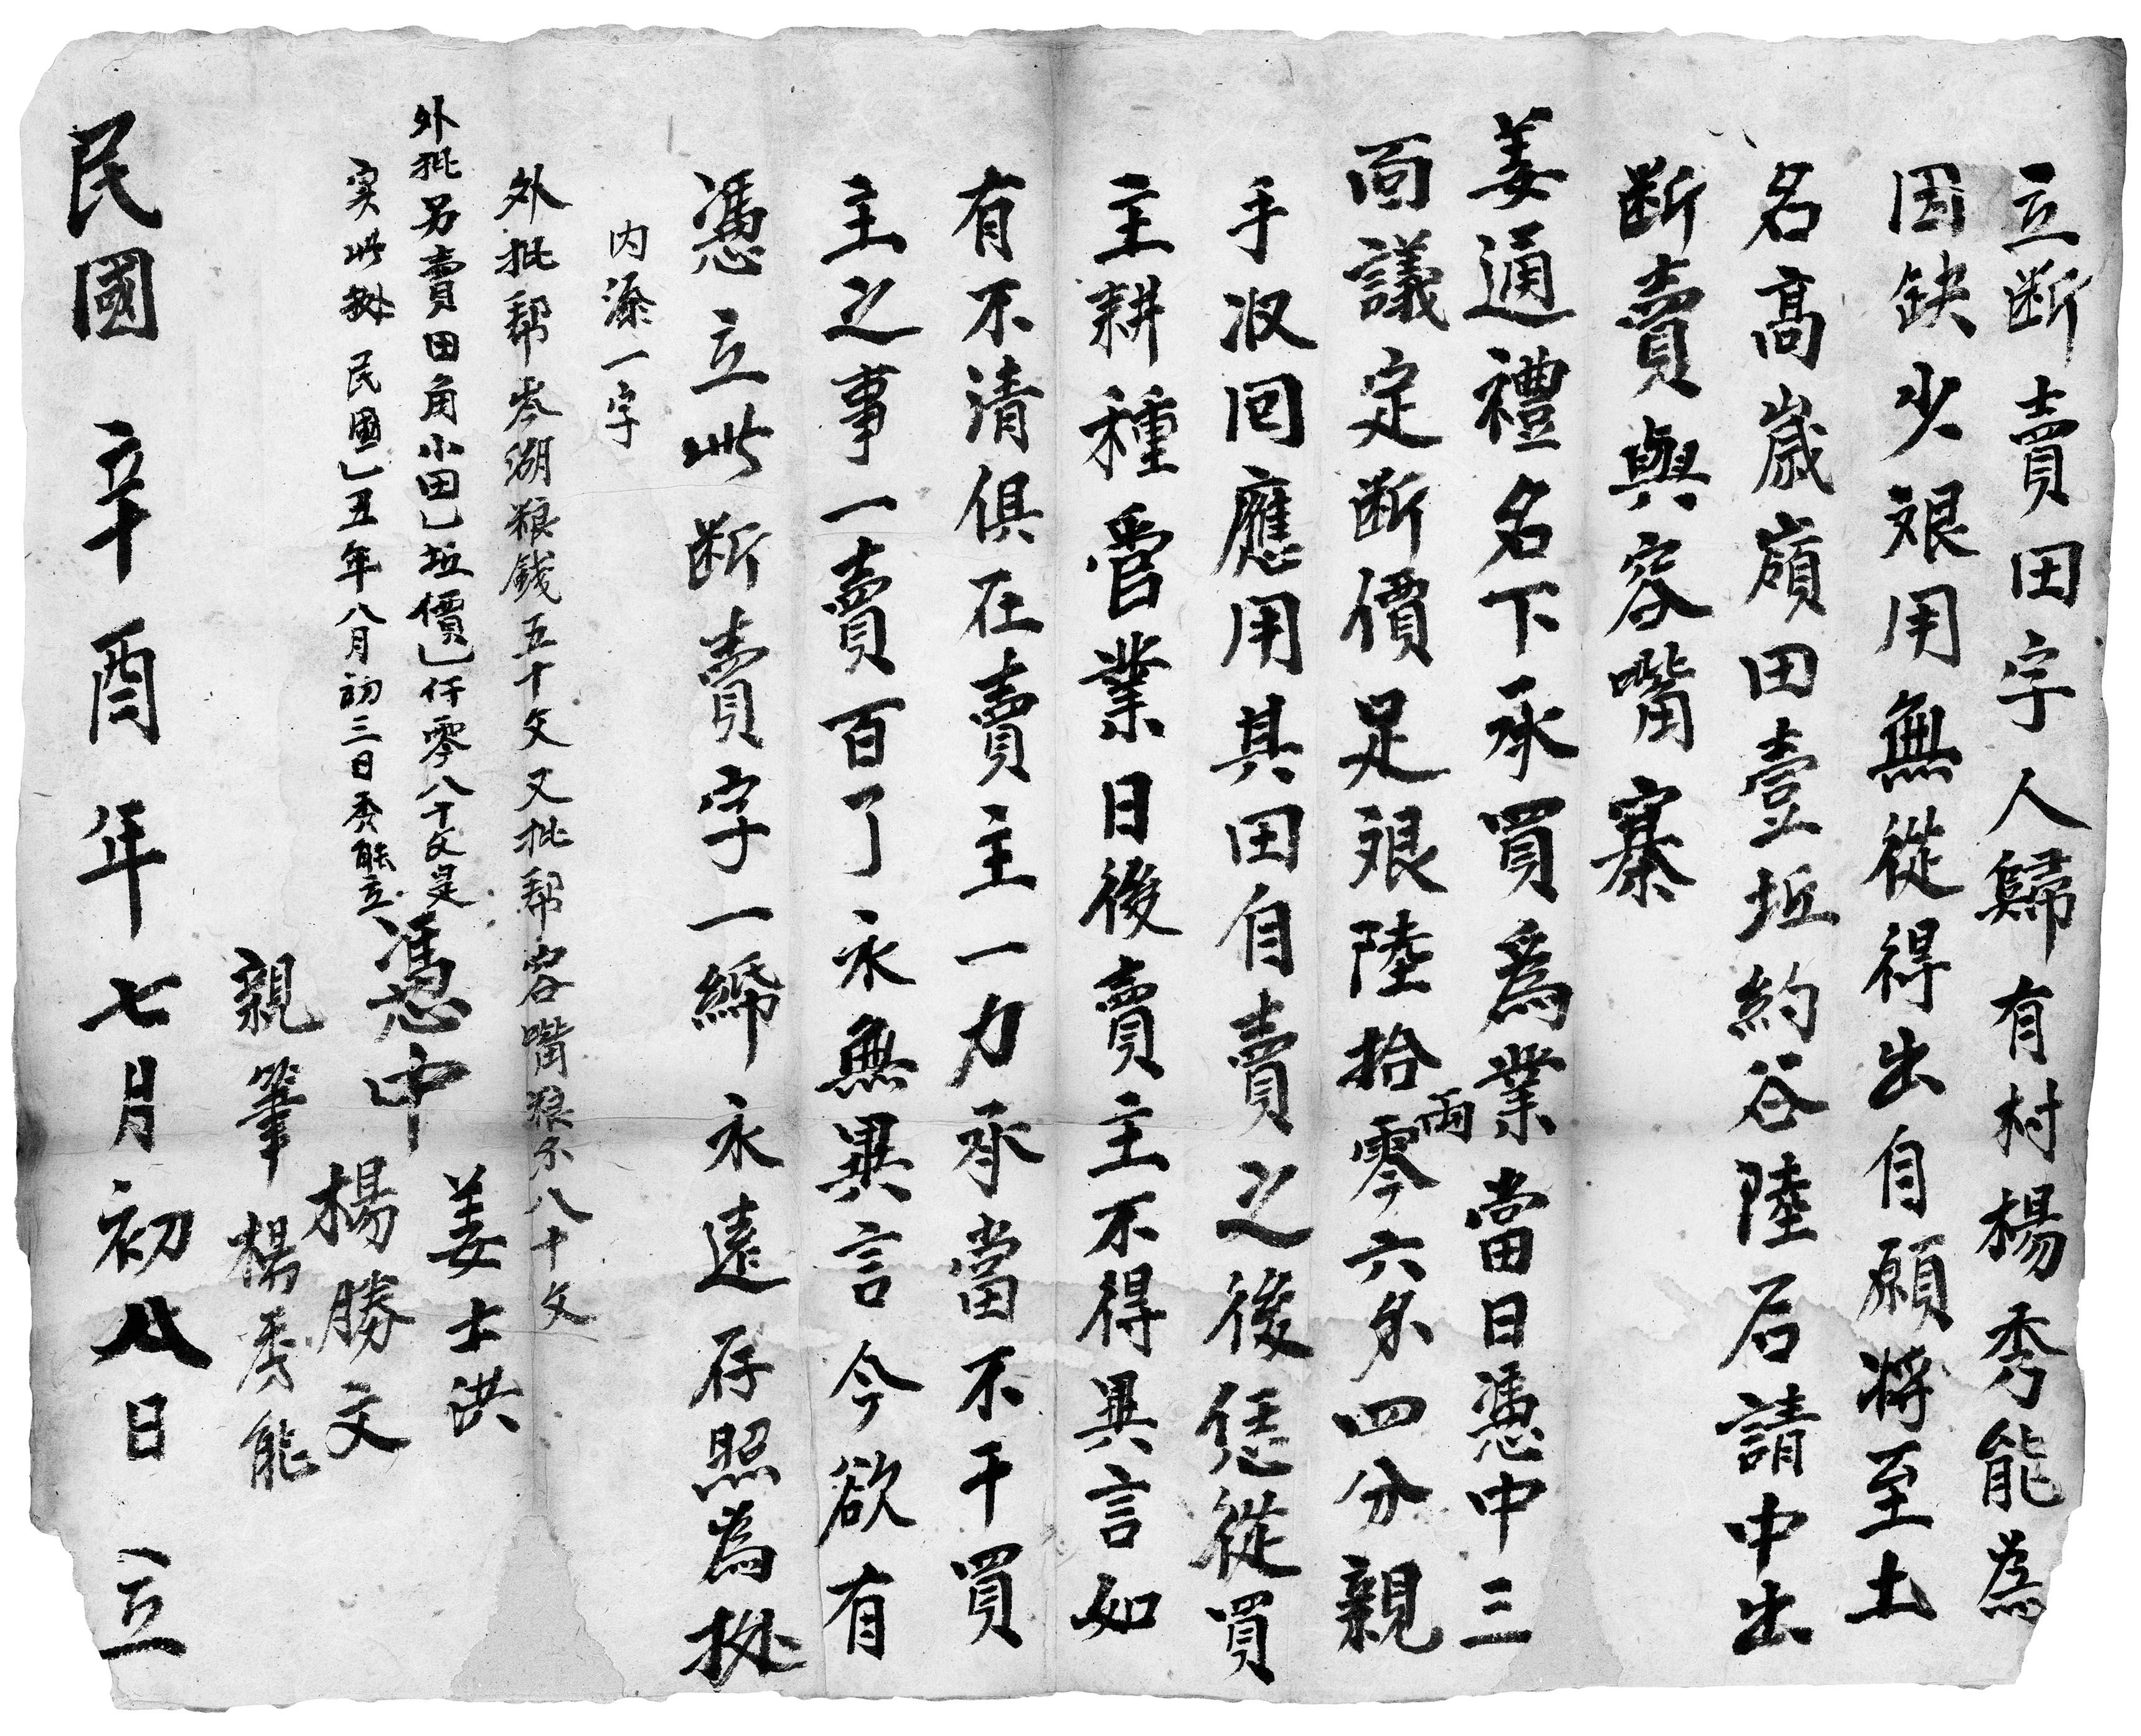 立断賣田字人歸有村楊秀能為
因缺少艮用無從得出自願将至土
名高嵗嶺田壹坵約谷陸石請中出
断賣與容嘴寨
姜通禮名下承買爲業當日憑中三
面議定断價足艮陸拾兩零六分四分親
手收回應用其田自賣之後恁從買
主耕種管業日後賣主不得異言如
有不清俱在賣主一力承當不干買
主之事一賣百了永無異言今欲有
憑立此断賣字一𥿄永遠存照為㨿
内添一字
外批帮岑湖粮錢五十文又批帮容嘴粮八十文
外批另賣田角小田乙坵價乙仟零八十文是
实此㨿 民國乙丑年八月初三日秀能立
憑中 姜士洪
楊勝文
親筆楊秀能
民國辛酉年七月初八日 立